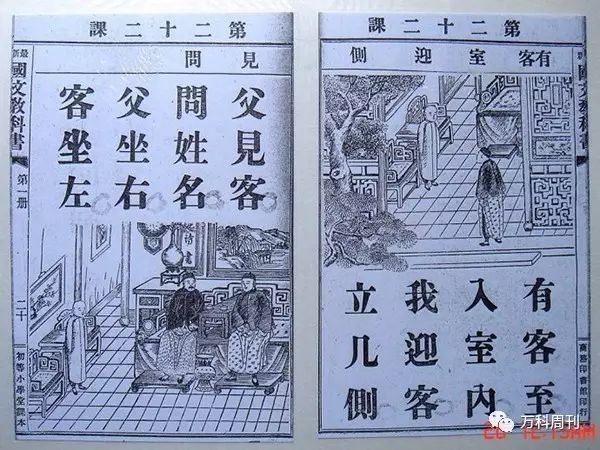 第二十二課
有客室迎側
有客至
入室內
我迎客
立几側
商務印書館印行
第二十二課
見問
父見客
問姓名
父坐右
客坐左
最新國文教科書
第一册
二十
初等小學堂課本
万科周刊